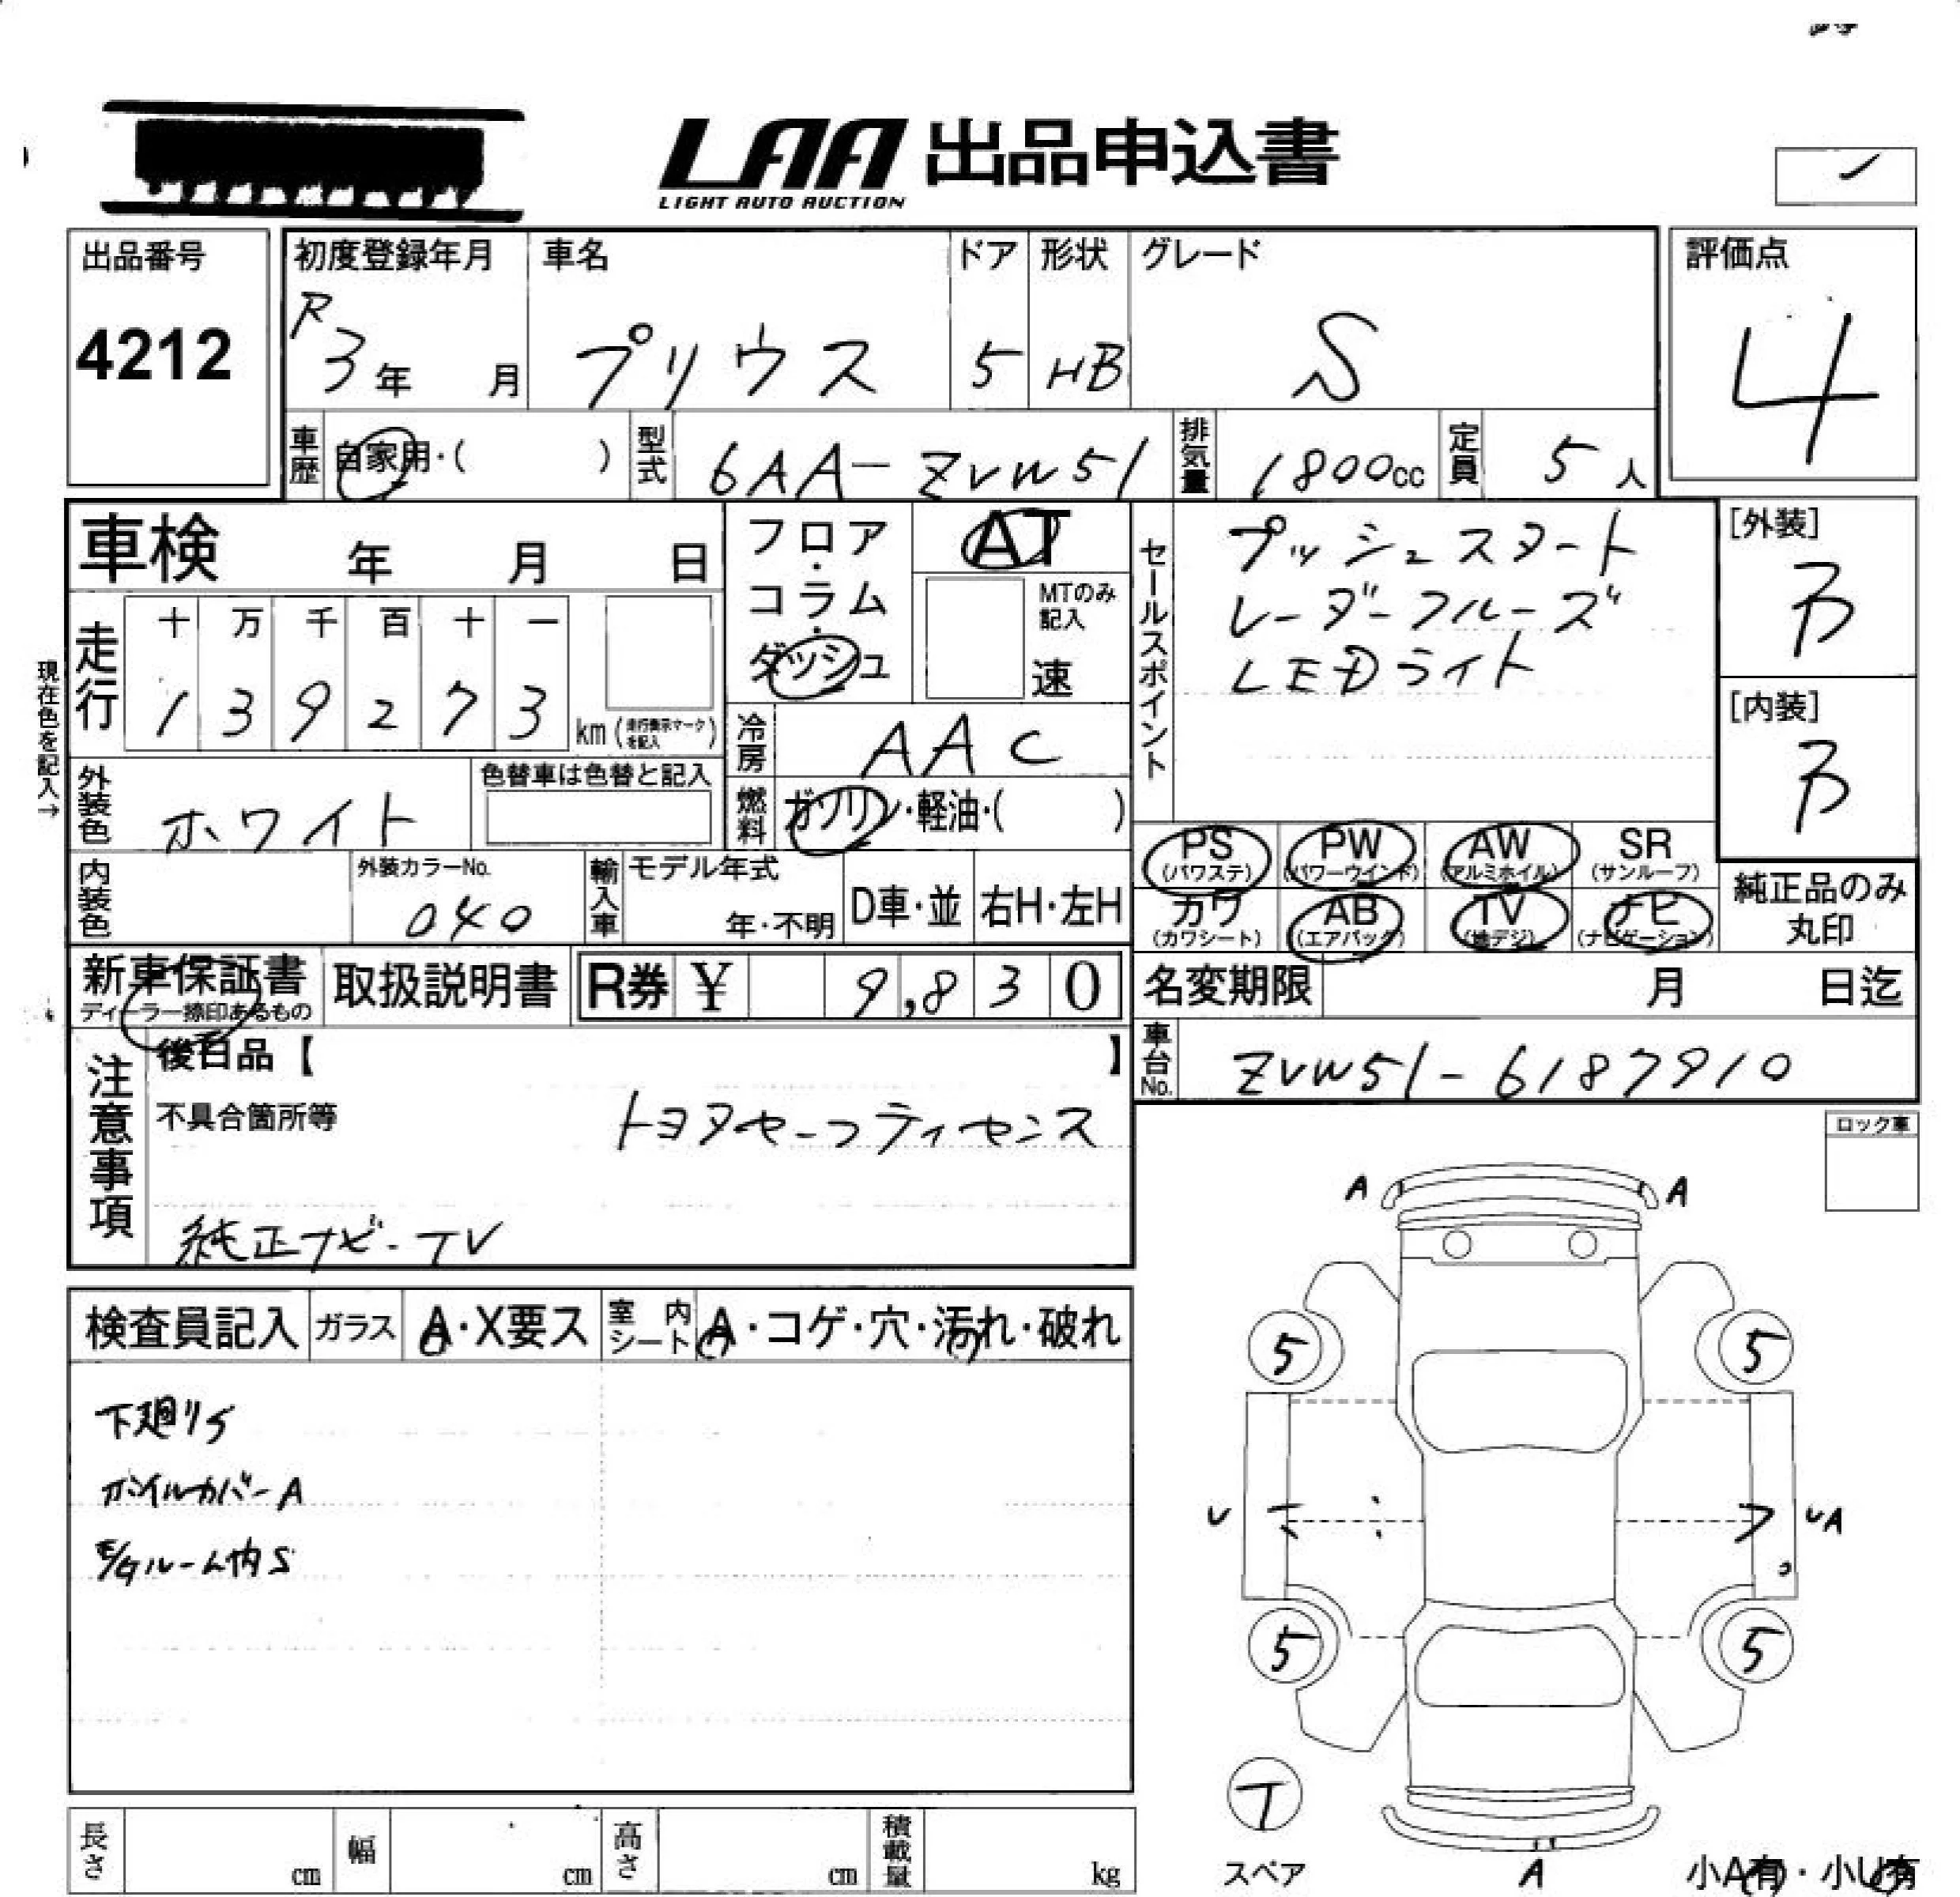 LAA 出品申込書
LIGHT AUTO AUCTION
出品番号
4212
初度登録年月
R
3年 月
車名
プリウス
ドア
5
形状
HB
グレード
S
評価点
4
車歴
自家用・( )
型式
6AA-ZVW51
排気量
1800cc
定員
5人
車検 年 月 日
フロア・コラム・ダッシュ
AT
MTのみ記入
速
セールスポイント
プッシュスタート
レーダークルーズ
LEDライト
[外装]
B
[内装]
B
現在色を記入→
走行
十 万 千 百 十 一
1 3 9 2 7 3
km (走行表示マークを記入)
冷房
AAC
燃料
ガソリン・軽油・( )
外装色
ホワイト
色替車は色替と記入
内装色
外装カラーNo.
040
輸入車
モデル年式
年・不明
D車・並
右H・左H
PS (パワステ)
PW (パワーウインド)
AW (アルミホイル)
SR (サンルーフ)
カワ (カワシート)
AB (エアバック)
TV (地デジ)
ナビ (ナビゲーション)
純正品のみ丸印
新車保証書
ディーラー捺印あるもの
取扱説明書
R券 ¥ 9,830
名変期限 月 日迄
車台No.
ZVW51-6187910
注意事項
後日品【 】
不具合箇所等
トヨタセーフティセンス
純正ナビ-TV
ロック車
検査員記入
ガラス
A・X要ス
室内シート
A・コゲ・穴・汚れ・破れ
下廻りS
ホイルカバーA
E/Gルーム内S
A A
5 5
U UA
5 5
T
スペア
A
小A有・小U有
長さ cm
幅 cm
高さ cm
積載量 kg